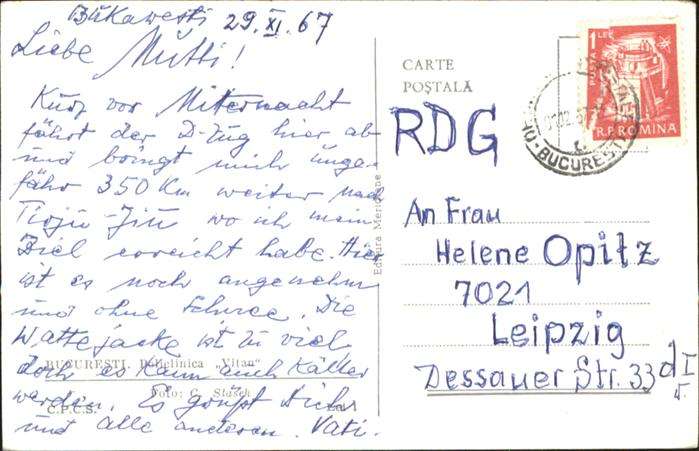 Bukarest 29.XI.67
Liebe Mutti!
Kurz vor Mitternacht
fährt der D-Zug hier ab
und bringt mich unge-
fähr 350 Km weiter nach
Tirgu-Jiu wo ich mein
Ziel erreicht habe. Hier
ist es noch angenehm
und ohne Schnee. Die
Wattejacke ist zu viel
doch es kann auch kälter
werden. Es grüßt Dich
und alle anderen. Vati.
BUCUREŞTI. Policlinica „Vitan"
Foto: G.
C.P.C.S.
Editura Meridiane
CARTE
POŞTALĂ
1 LEU
POSTA
R.P.ROMINA
BUCUREŞTI
RDG
An Frau
Helene Opitz
7021
Leipzig
Dessauer Str. 33 d I
r.